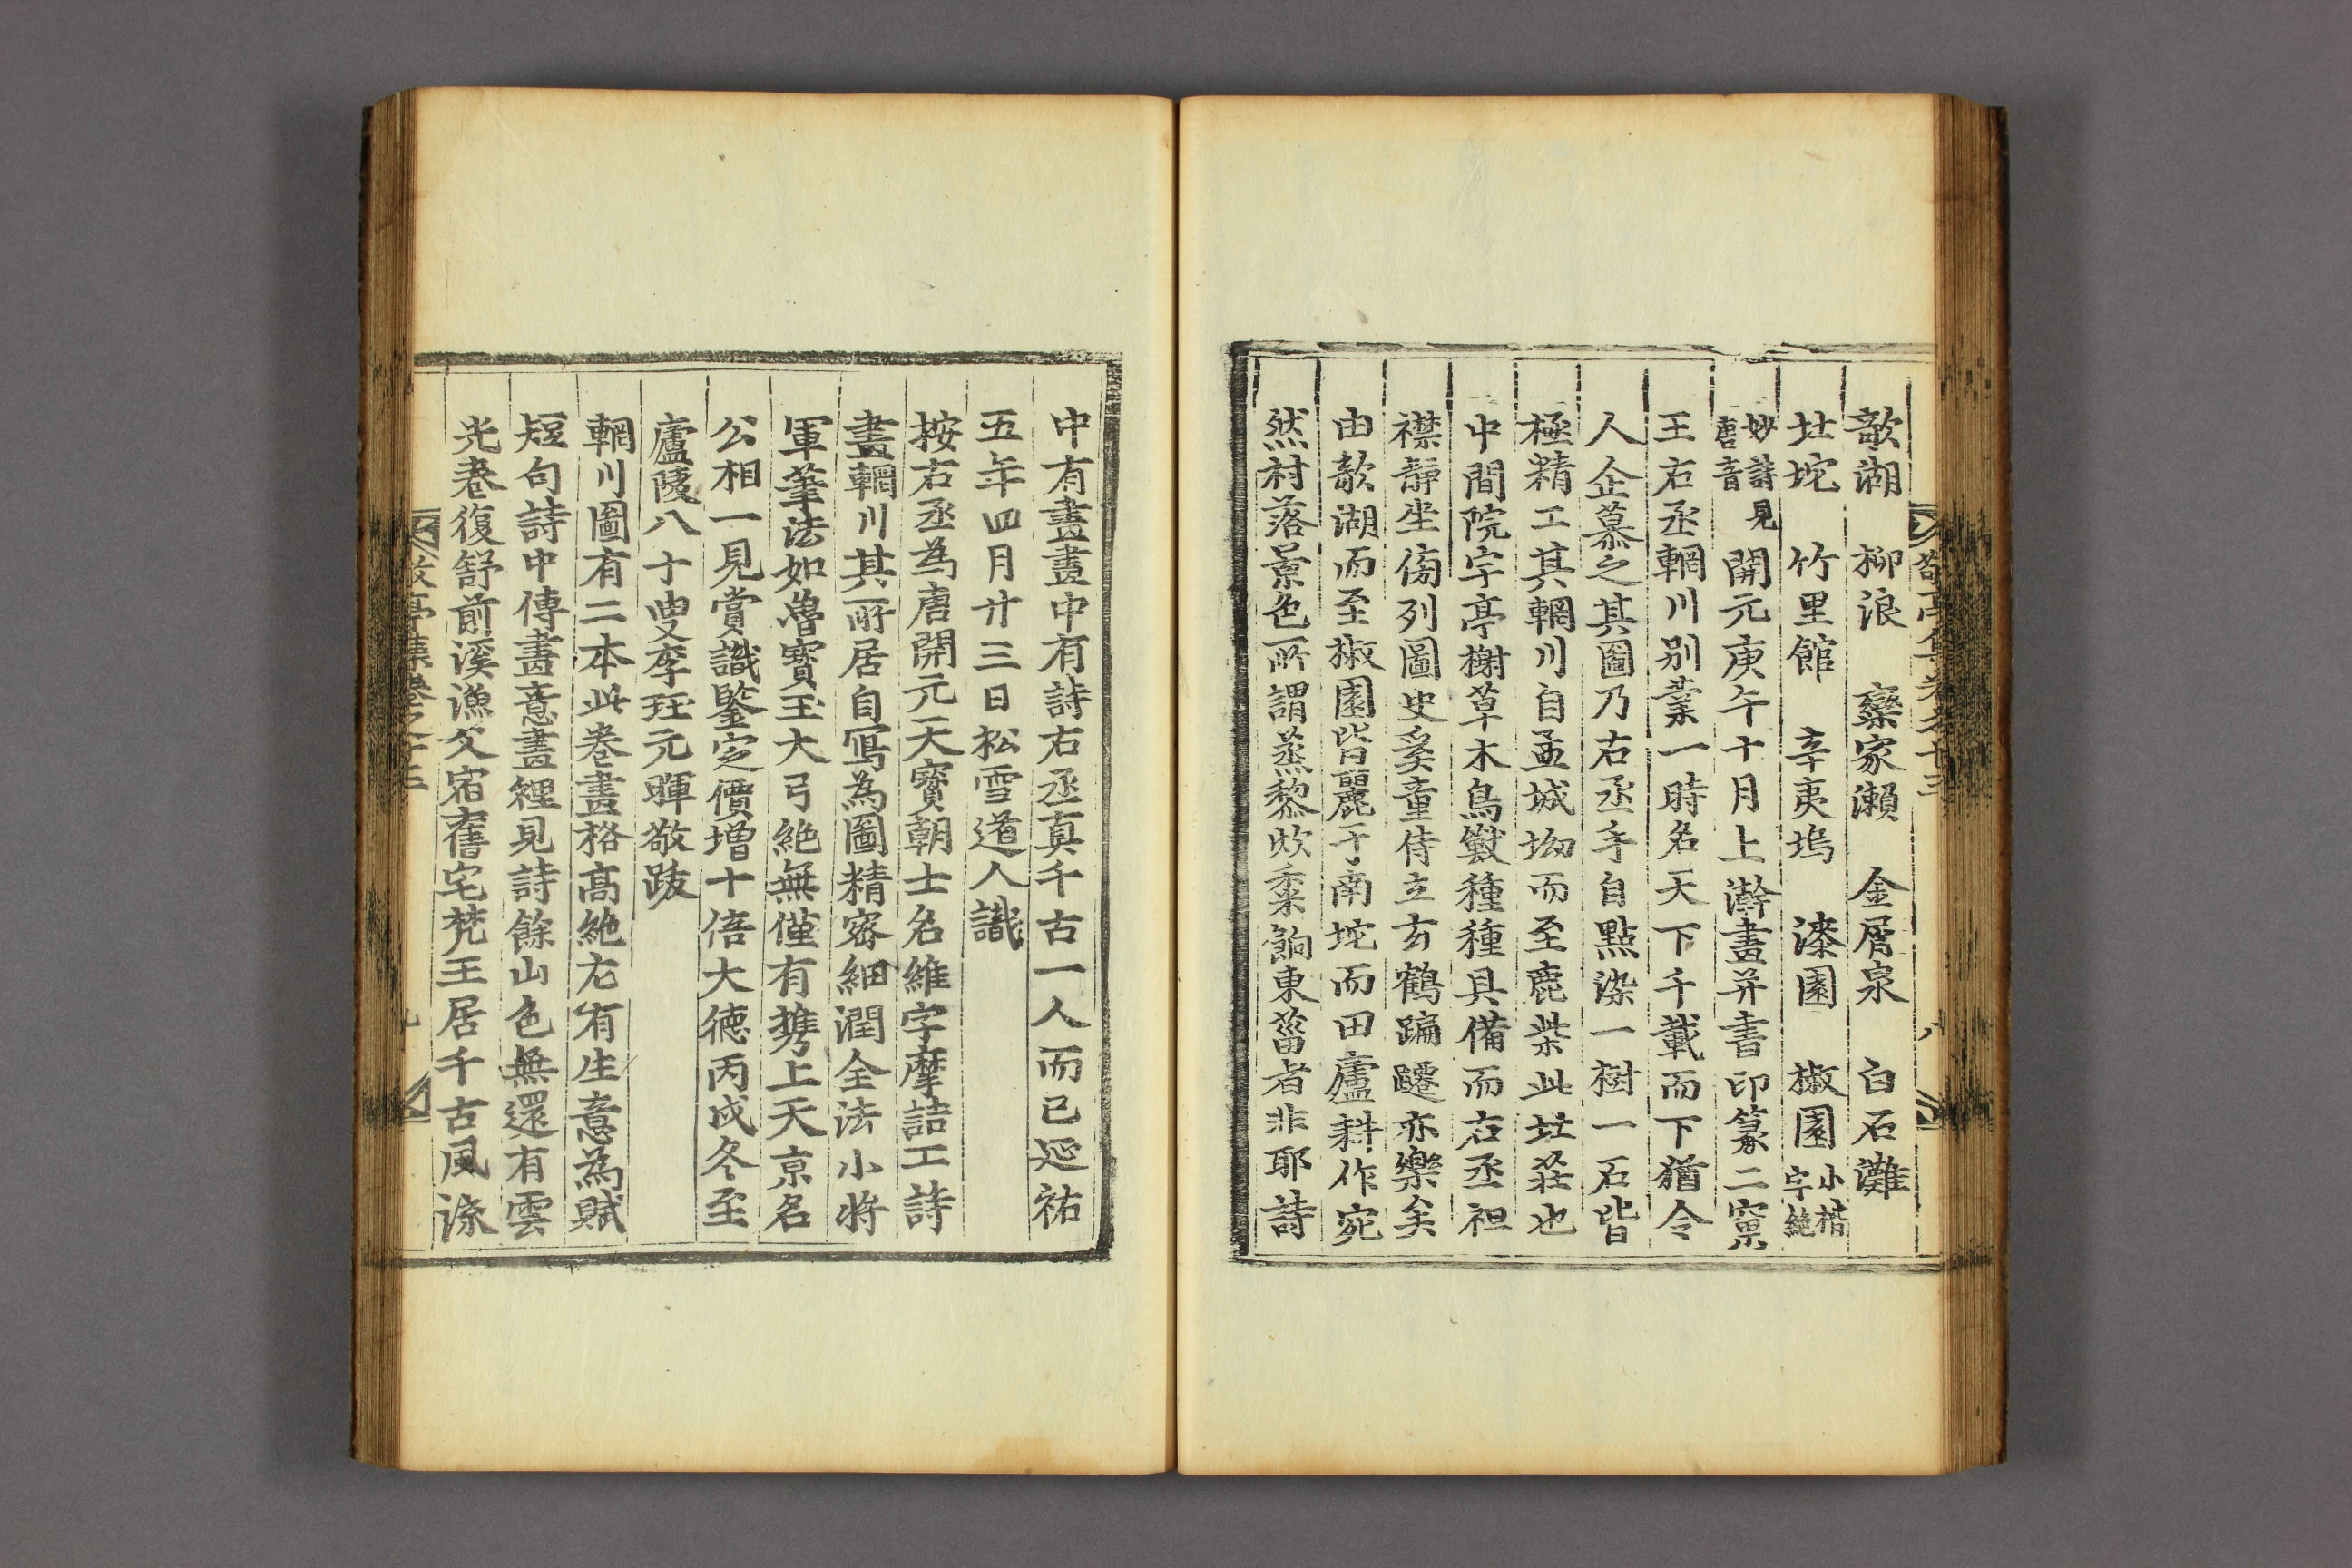 歆湖 柳浪 欒家瀨 金屑泉 白石灘
𡉏坨 竹里館 辛夷塢 漆園 椒園 小楷字絶
妙詩見唐音 開元庚午十月上澣畫并書印篆二窠
王右丞輞川別業一時名天下千載而下猶令
人企慕之其圖乃右丞手自點染一樹一石皆
極精工其輞川自孟城坳而至鹿柴此𡉏莊也
中間院宇亭榭草木鳥獸種種具備而右丞袒
襟靜坐傍列圖史奚童侍立玄鶴蹁躚亦樂矣
由歆湖而至椒園皆麗于南坨而田廬耕作宛
然村落景色所謂蒸黎炊黍餉東菑者非耶詩
中有畫畫中有詩右丞真千古一人而已延祐
五年四月廿三日松雪道人識
按右丞為唐開元天寶朝士名維字摩詰工詩
畫輞川其所居自寫為圖精密細潤全法小將
軍筆法如魯寶玉大弓絶無僅有携上天京名
公相一見賞識鑒定價增十倍大德丙戌冬至
廬陵八十叟李珏元暉敬跋
輞川圖有二本此卷畫格高絶尤有生意為賦
短句詩中傳畫意畫裡見詩餘山色無還有雲
光卷復舒前溪漁父宿舊宅梵王居千古風流